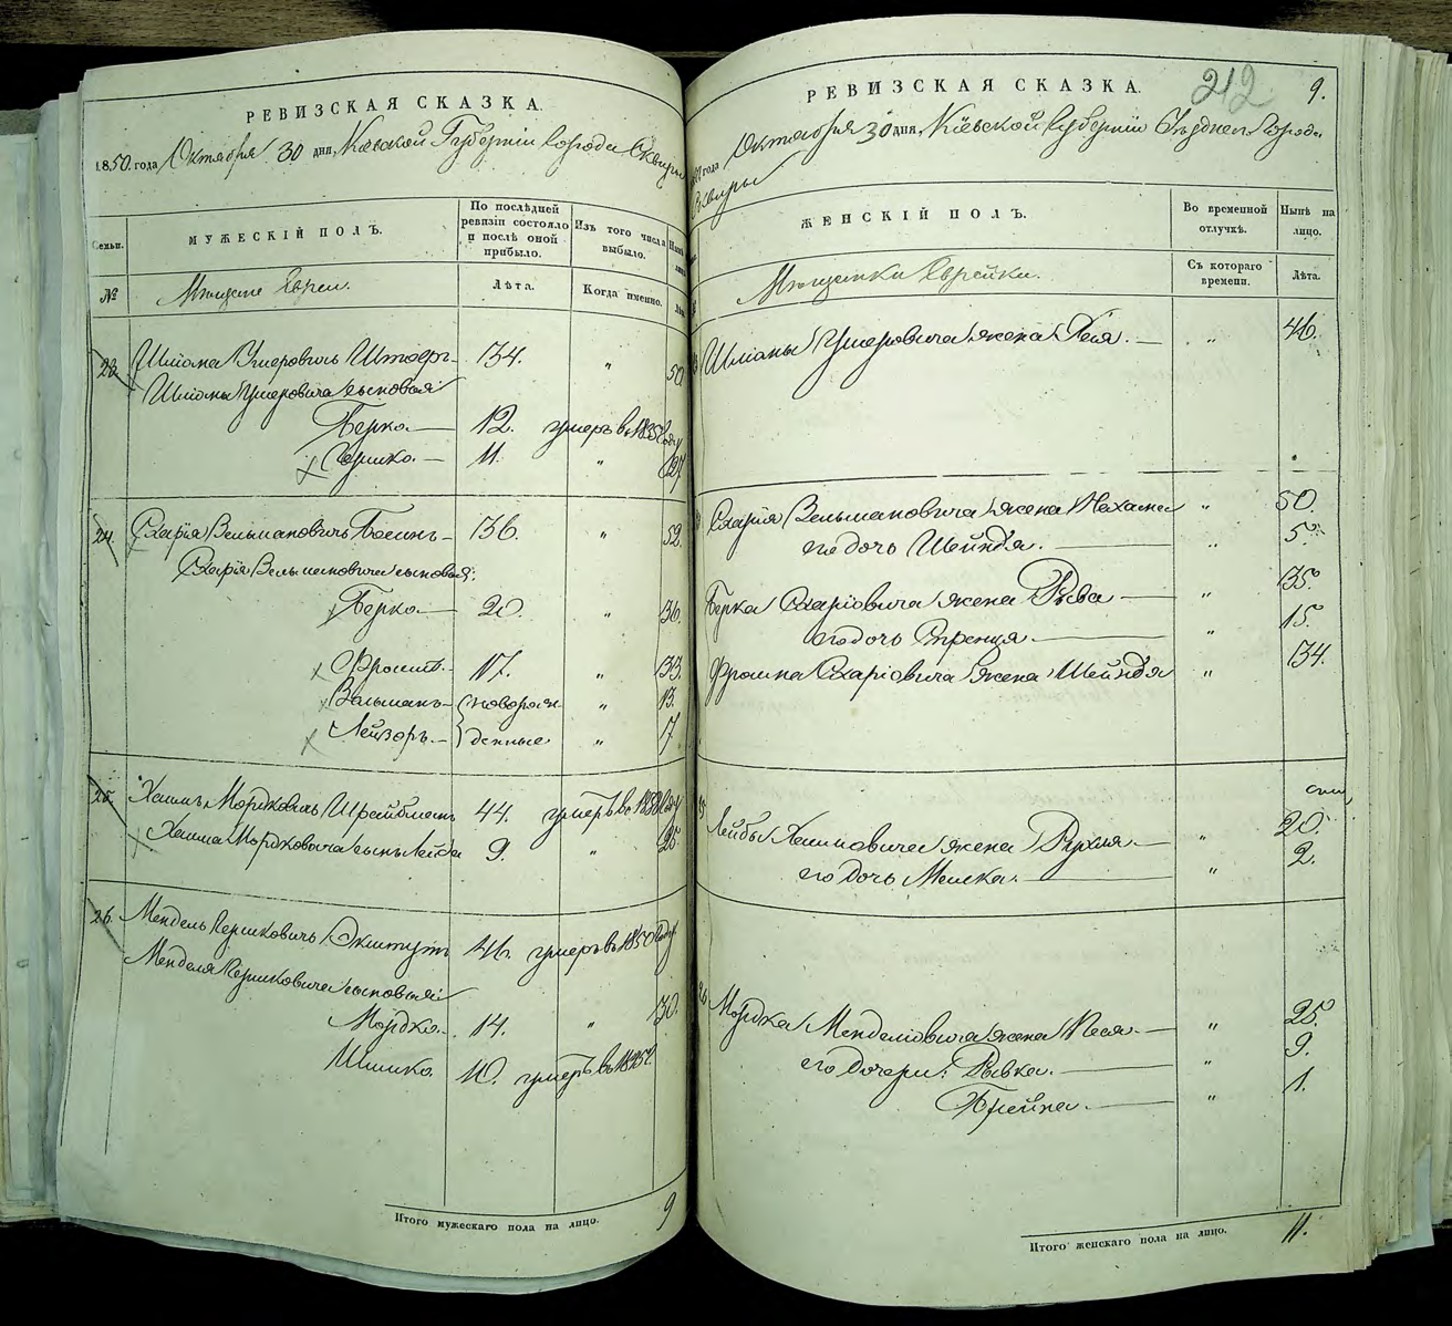 РЕВИЗСКАЯ СКАЗКА.
1850. года Октября 30 дня, Кіевской Губерніи Города Сквиры
Семьи.
МУЖЕСКІЙ ПОЛЪ.
По послѣдней ревизіи состояло и послѣ оной прибыло.
Изъ того числа выбыло.
№
Мѣщане Евреи.
Лѣта.
Когда именно.
23. 34. „ 50.
сыновья
Берко — 12. умеръ в 1835 году
Гершко. — 11. „ 27
24. Схарія Вельмановичъ — 36. „ 52.
Схарія Вельмановича сыновья:
Берко — 20. „ 36.
Фроимъ. — 17. „ 33.
Вельманъ — новорож- „ 13.
Лейзоръ. — денные „ 7
25. Хаимъ Мордковичъ 44. умеръ в 1838 году
Хаима Мордковича сынъ Лейба 9. „ 25.
26. Мендель Гершковичъ 46. умеръ въ 1850 году
Менделя Гершковича сыновья:
Мордко. 14. „ 30.
Шмико. 10. умеръ въ
Итого мужескаго пола на лицо. 9
РЕВИЗСКАЯ СКАЗКА. 212 9.
года Октября 30 дня, Кіевской Губерніи Уѣзднаго Города
Сквиры
ЖЕНСКІЙ ПОЛЪ.
Во временной отлучкѣ.
Нынѣ на лицо.
Мѣщанки Еврейки.
Съ котораго времени.
Лѣта.
жена Хая. — „ 46.
Схарія Вельмановича жена Нехама „ 50.
его дочь Шейндя. — „ 5.
Берка Схаріовича жена Рыва — „ 35.
его дочь Стренця. — „ 15.
Фроима Схаріовича жена Шейндя „ 34.
Лейбы Хаимовича жена Рухля. — „ 20.
его дочь Малка. — „ 2.
Мордка Менделіовича жена Песя. — „ 25.
его дочери: Рывка. — „ 9.
Брейна. — „ 1.
Итого женскаго пола на лицо. 11.